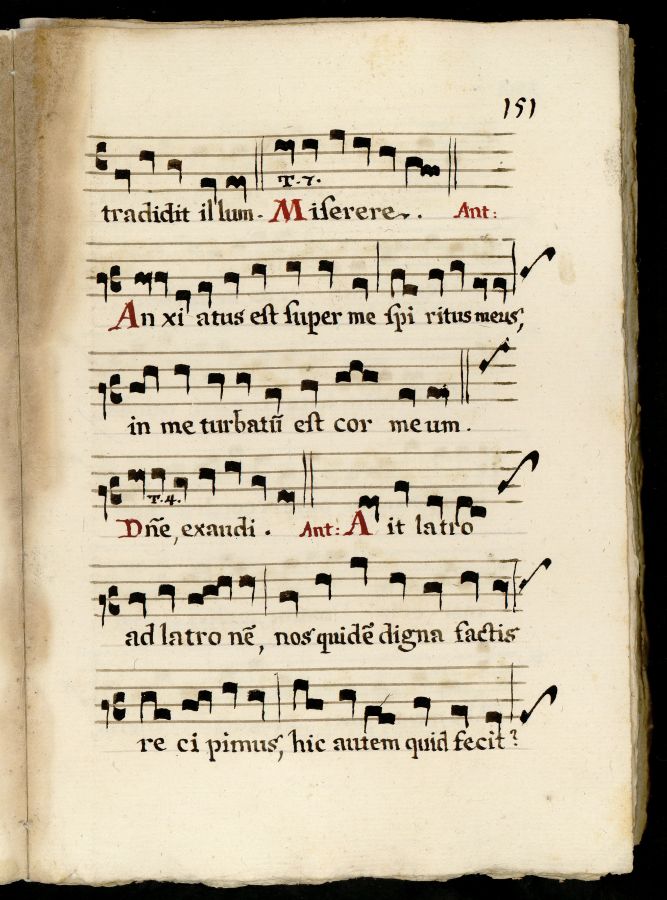 151
T. 7.
tradidit illum. Miserere. Ant:
An xi atus est super me spi ritus meus,
in me turbatū est cor meum.
T. 4.
Dñe, exaudi. Ant: A it latro
ad latro nē, nos quidē digna factis
re ci pimus, hic autem quid fecit?